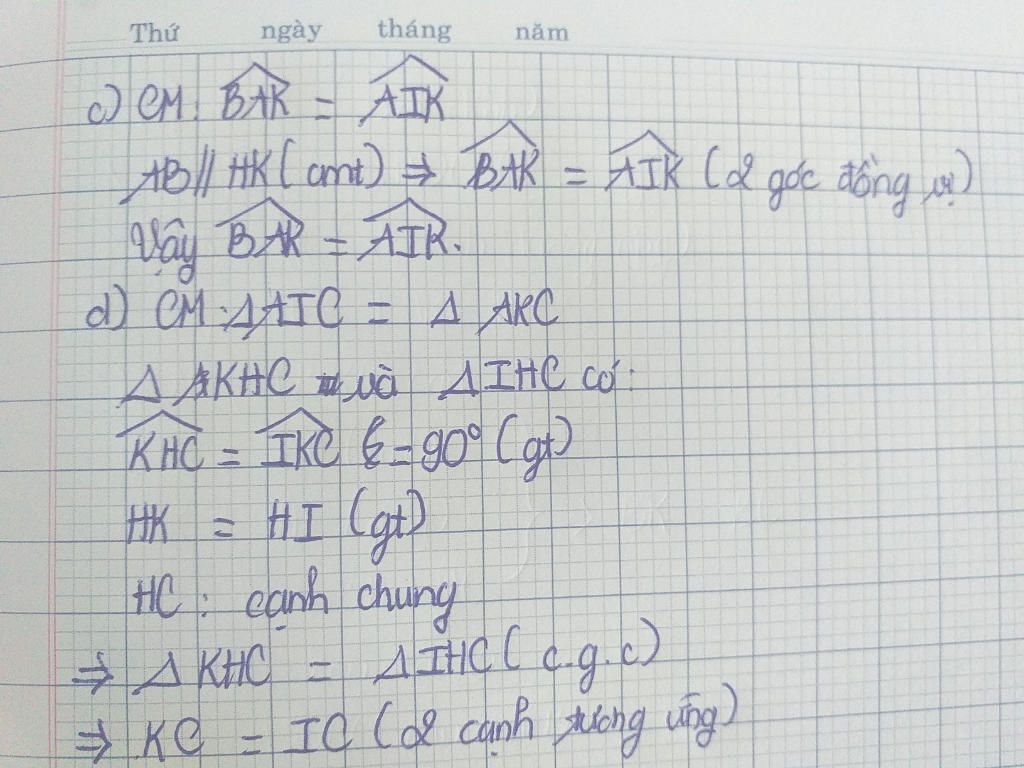 Thứ ngày tháng năm
c) CM: BAK = AIK
AB // HK (cmt) ⇒ BAK = AIK (2 góc đồng vị)
Vậy BAK = AIK.
d) CM: Δ AIC = Δ AKC
Δ KHC và Δ IHC có:
KHC = IKC = 90° (gt)
HK = HI (gt)
HC: cạnh chung
⇒ Δ KHC = Δ IHC (c.g.c)
⇒ KC = IC (2 cạnh tương ứng)